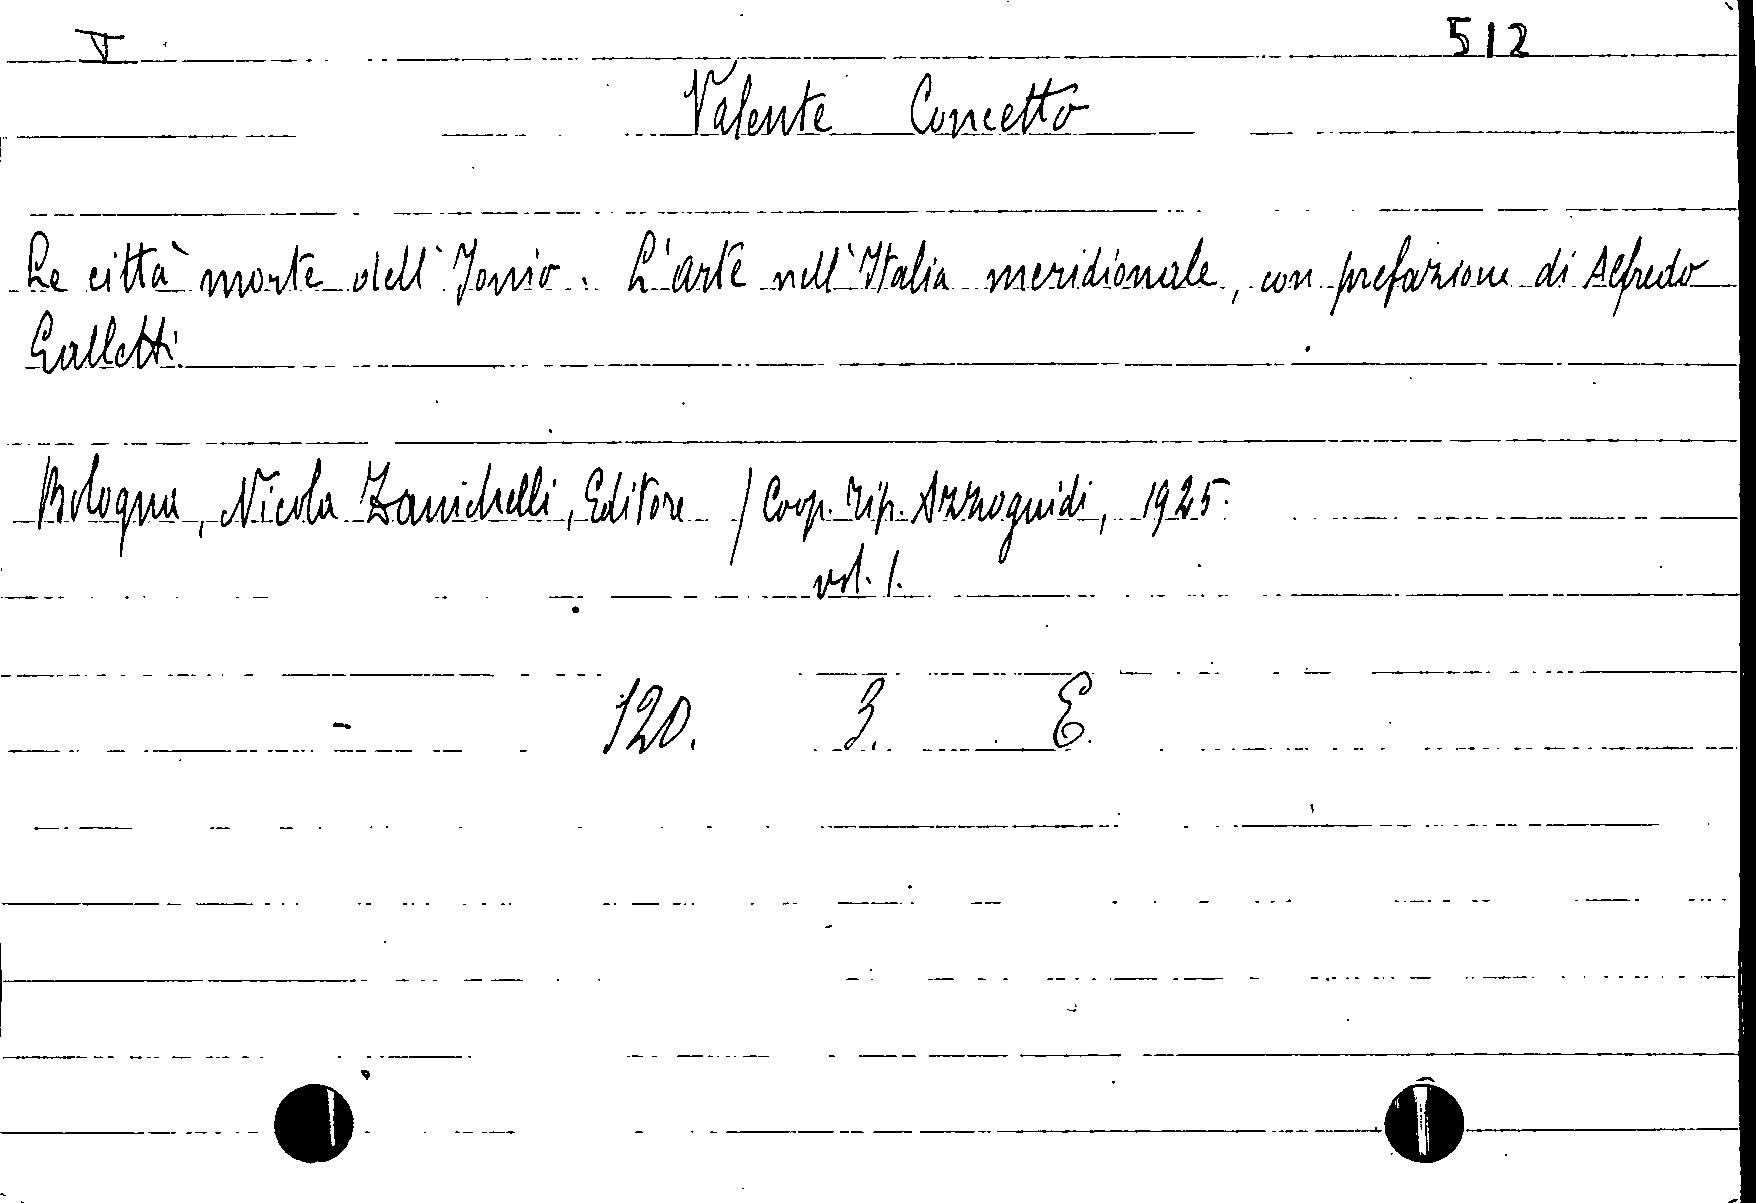 V 512
Valente Concetto
Le città morte dell'Jonio. L'arte nell'Italia meridionale, con prefazione di Alfredo
Galletti.
Bologna, Nicola Zanichelli, Editore / Coop. Tip. Azzoguidi, 1925.
vol. 1.
120. 3. E.